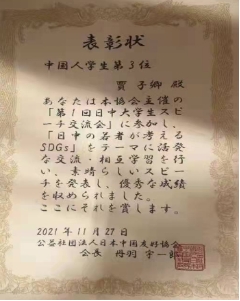 表彰状
中国人学生第3位
賈 子卿 殿
あなたは本協会主催の
「第1回日中大学生スピ
ーチ交流会」に参加し、
「日中の若者が考える
SDGs」をテーマに活発
な交流・相互学習を行
い、素晴らしいスピー
チを発表し、優秀な成績
を収められました。
ここにそれを賞します。
2021年11月27日
公益社団法人日本中国友好協会
会長 丹羽 宇一郎